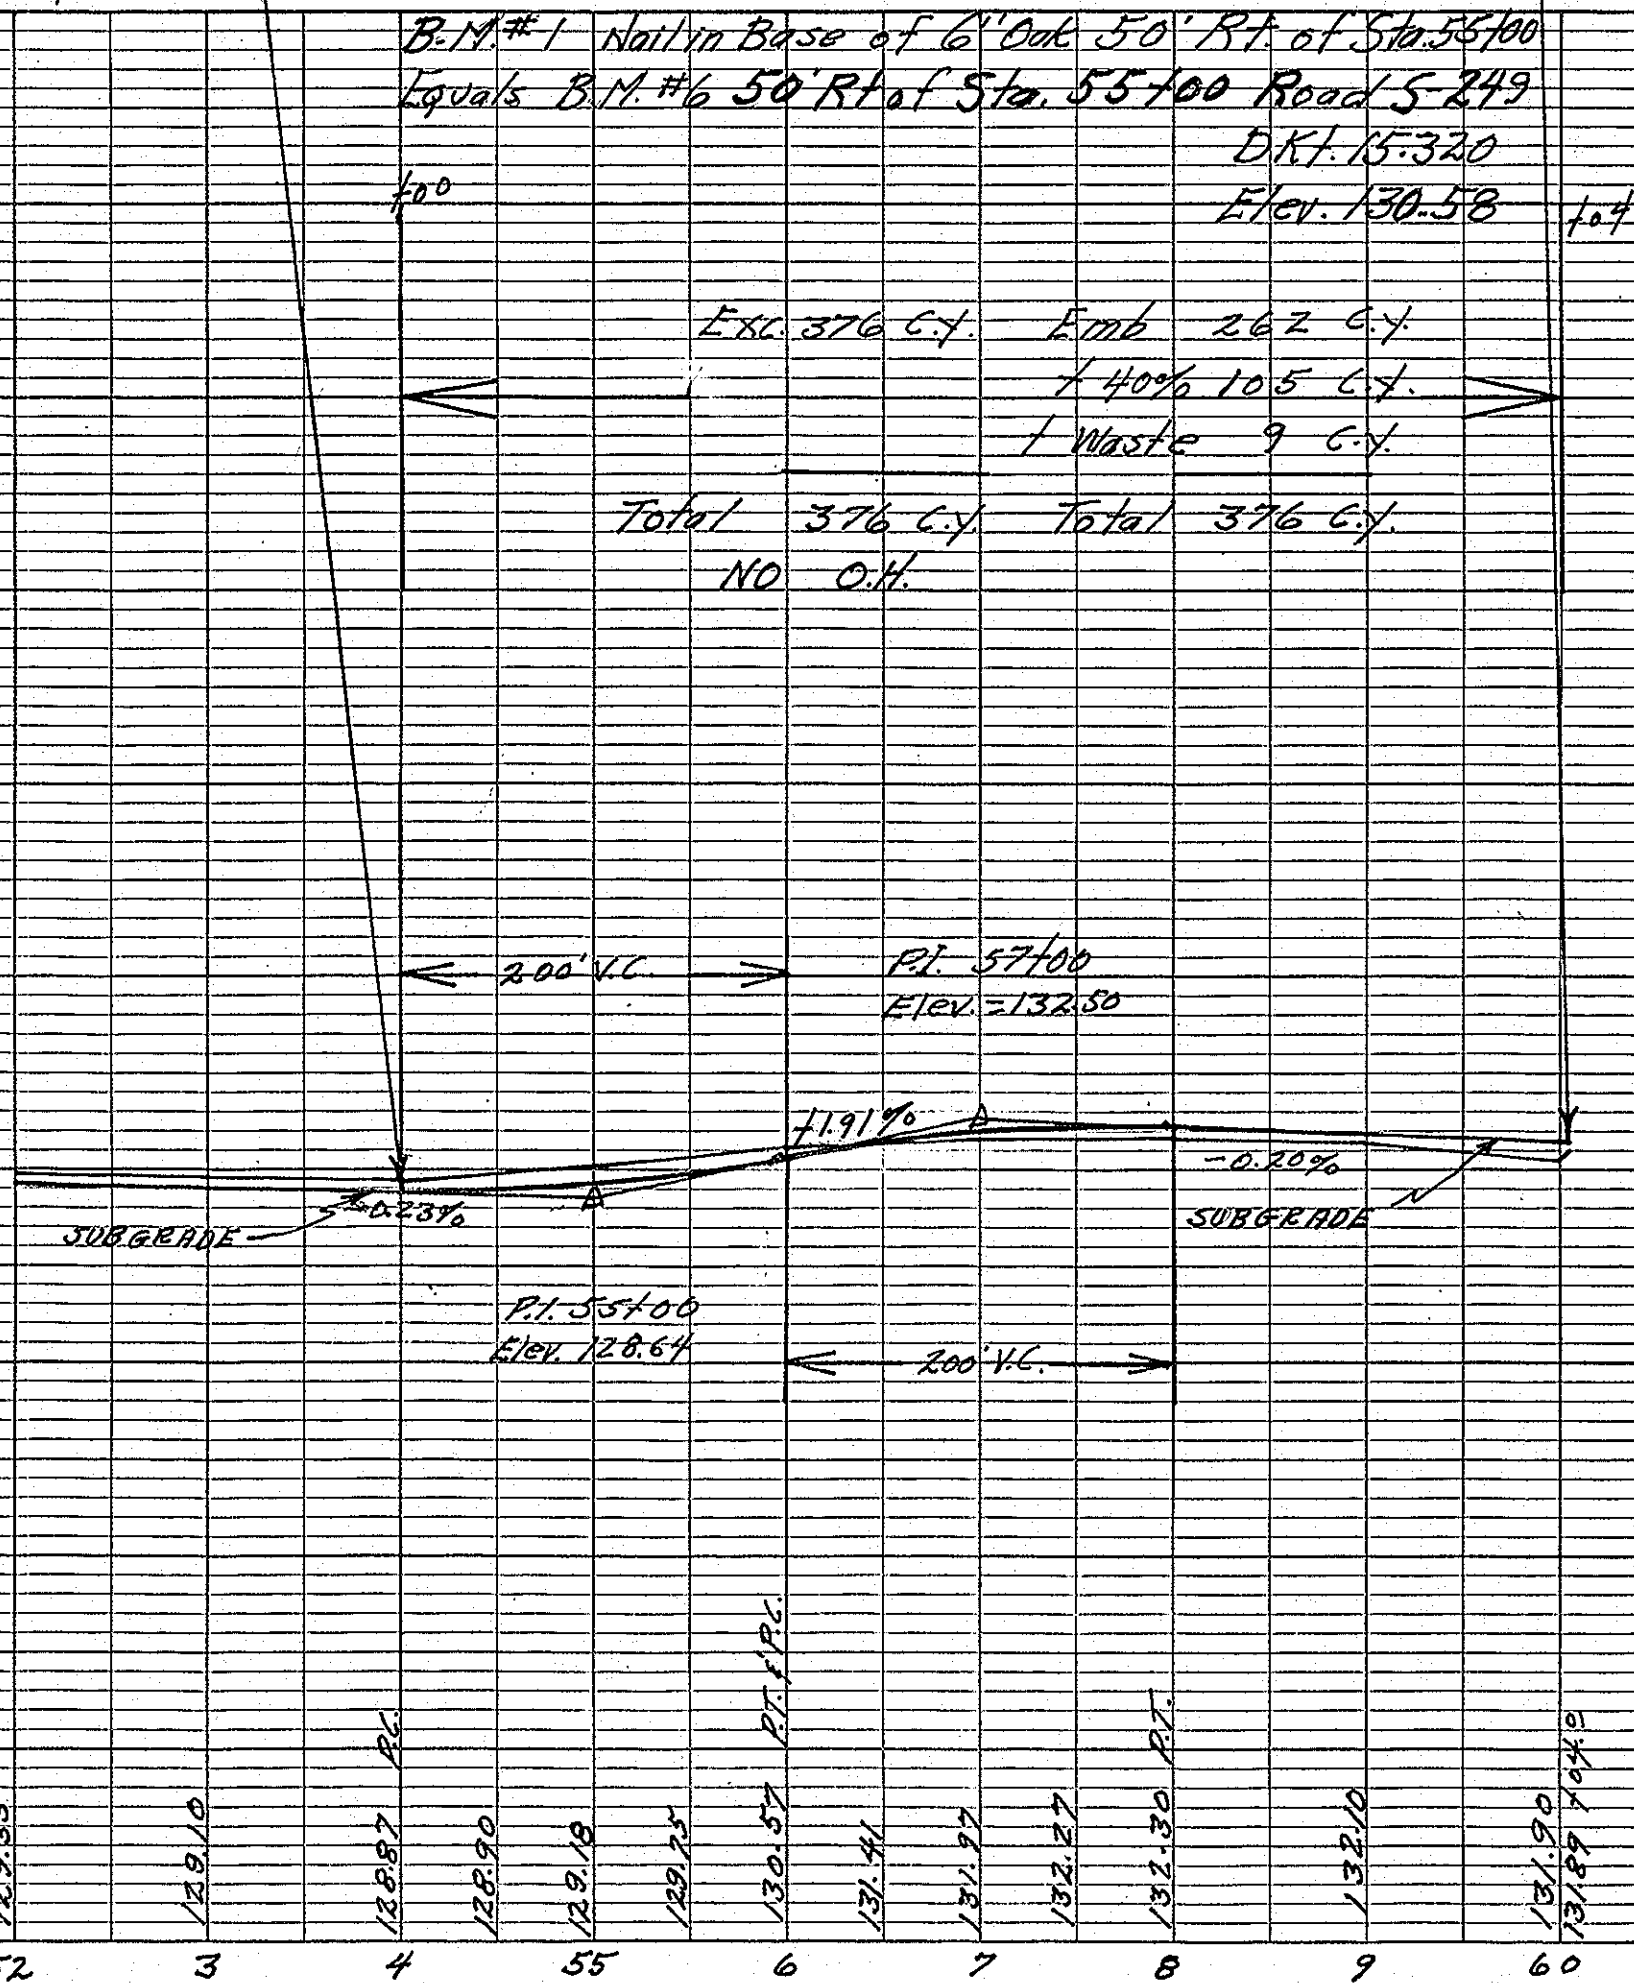 B.M. #1 Nail in Base of 6" Oak 50' Rt. of Sta. 55+00
Equals B.M. #6 50' Rt of Sta. 55+00 Road S-249
DKt. 15.320
Elev. 130.58
+00
+04
Exc. 376 C.Y. Emb 262 C.Y.
+ 40% 105 C.Y.
+ Waste 9 C.Y.
Total 376 C.Y. Total 376 C.Y.
NO O.H.
200' V.C.
P.I. 57+00
Elev. = 132.50
+1.91%
-0.20%
-0.23%
SUBGRADE
SUBGRADE
P.I. 55+00
Elev. 128.64
200' V.C.
129.10
128.87 P.C.
128.90
129.18
129.75
130.57 P.T. & P.C.
131.41
131.97
132.27
132.30 P.T.
132.10
131.90
131.89 +04.0
52 3 4 55 6 7 8 9 60